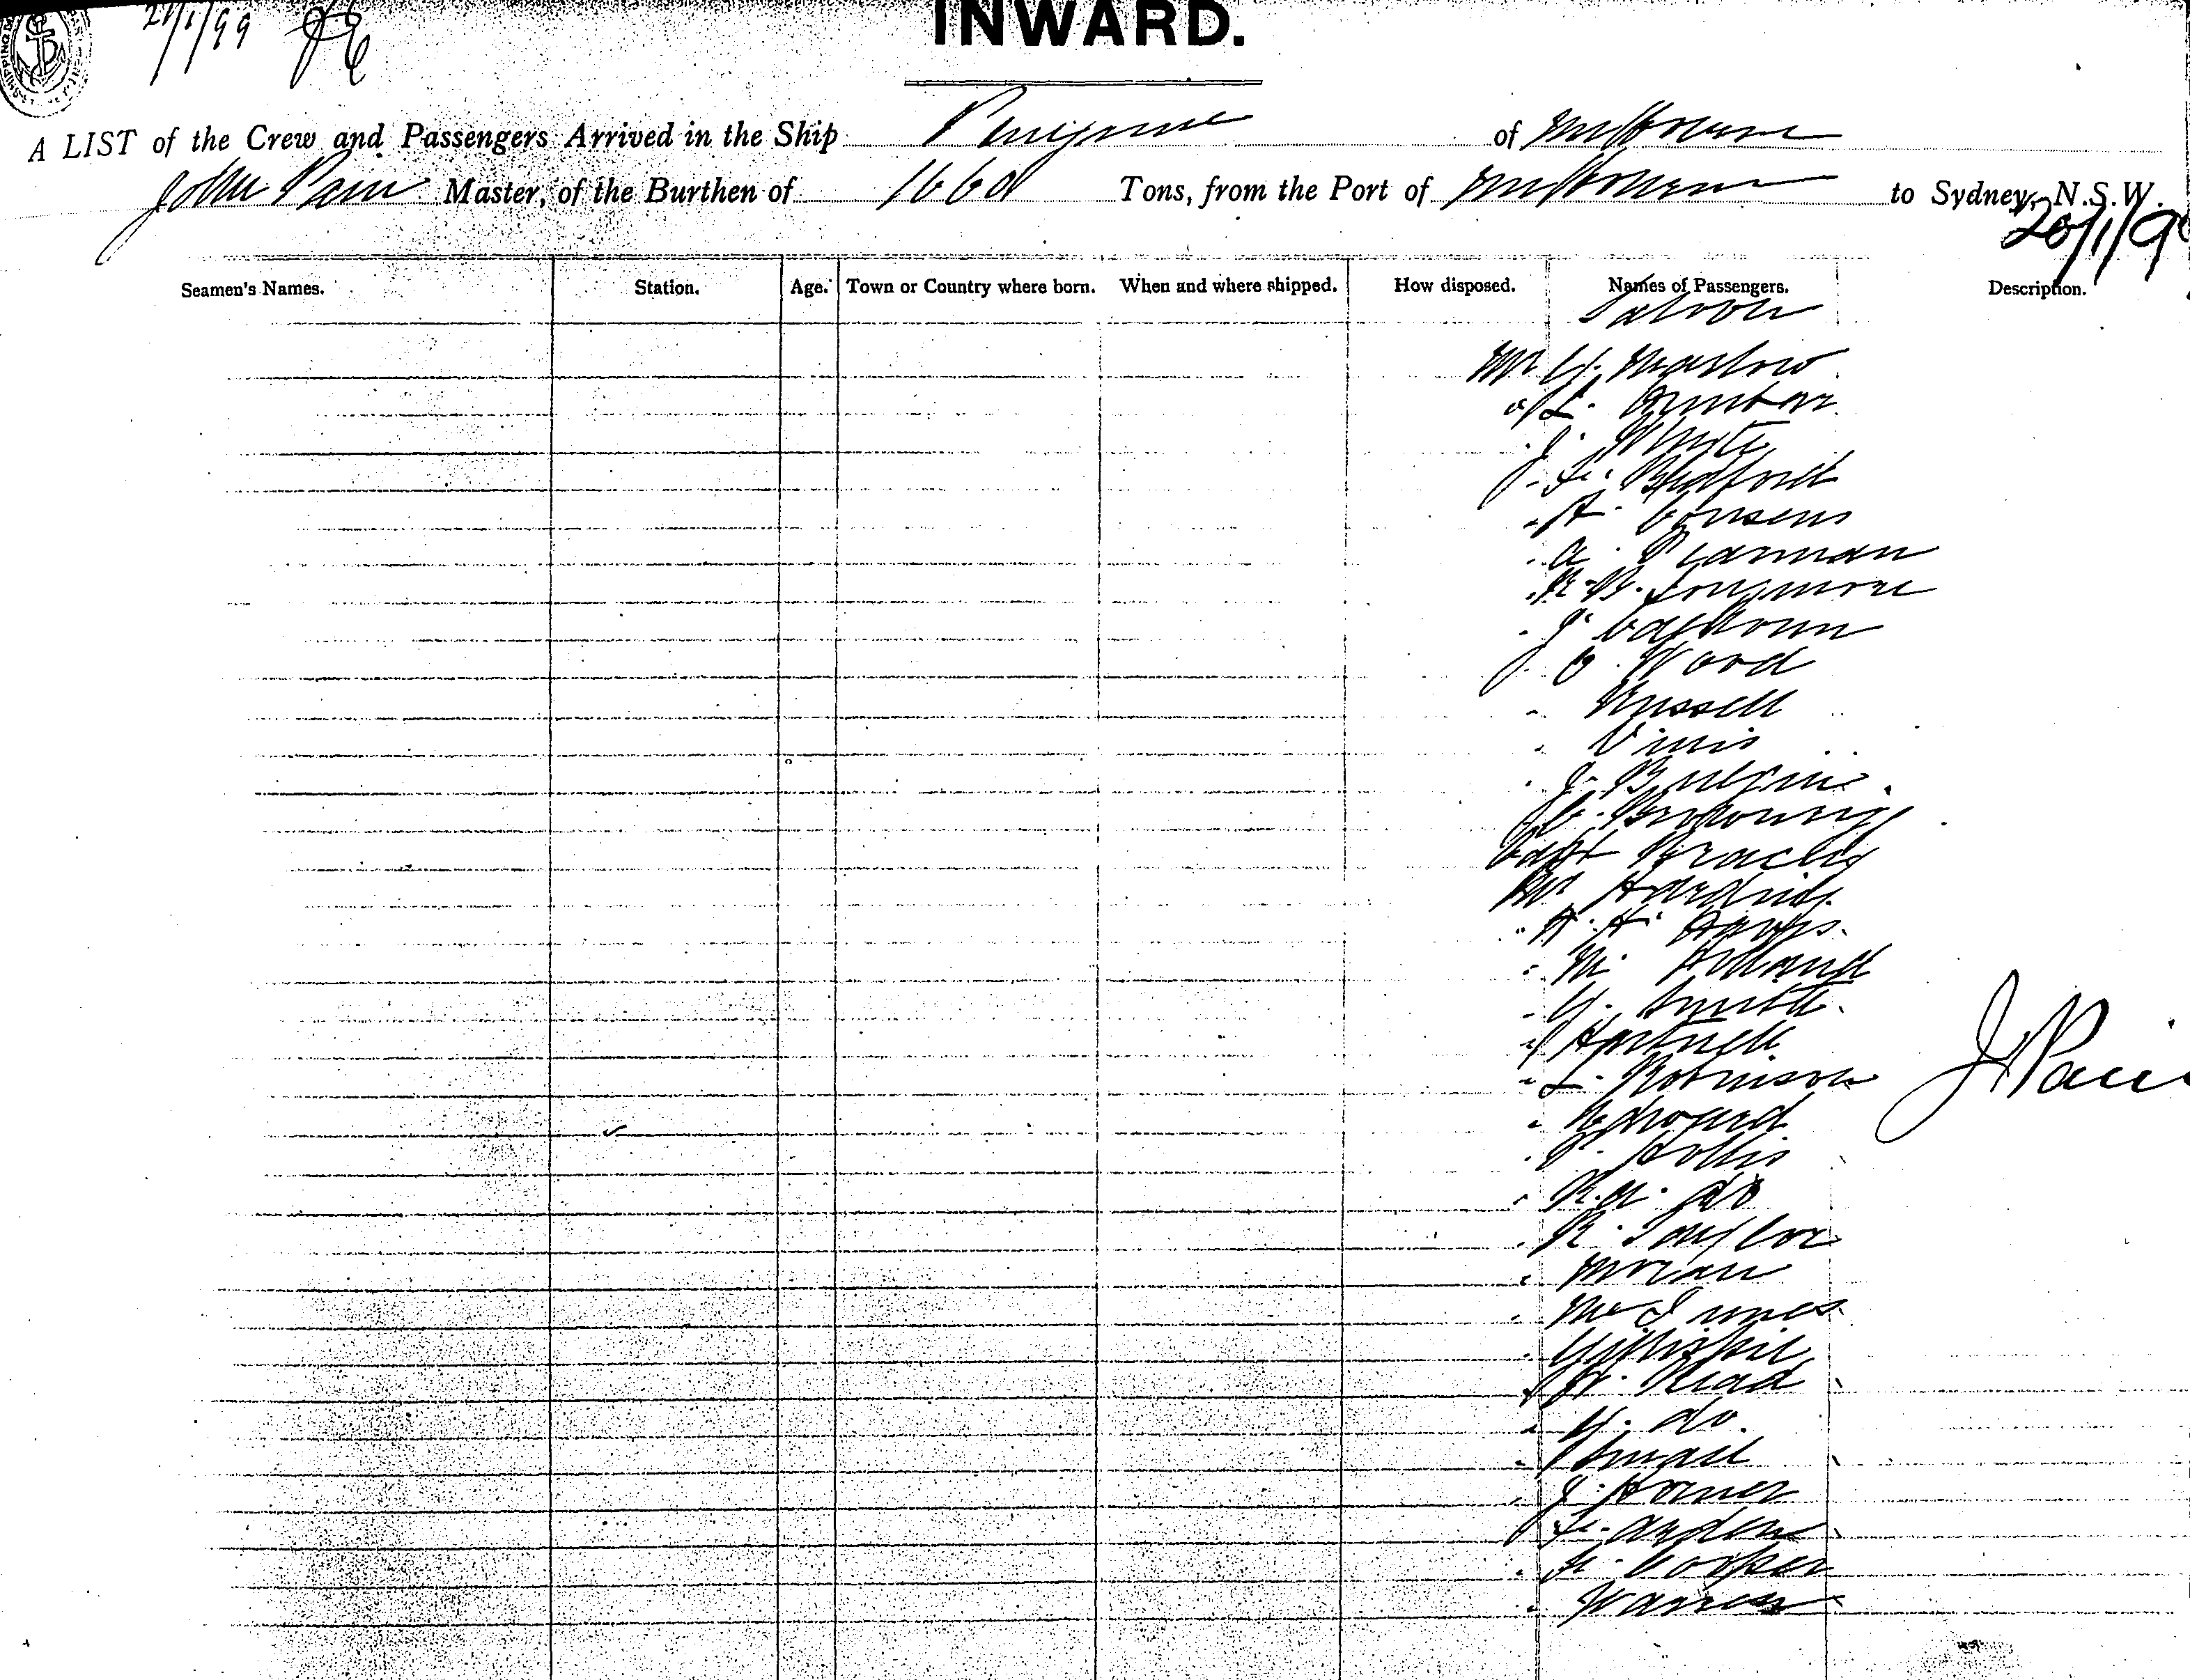 21/1/99 JE
INWARD.
A LIST of the Crew and Passengers Arrived in the Ship Peregrine of Melbourne
John Pain Master, of the Burthen of 1660 Tons, from the Port of Melbourne to Sydney, N.S.W.
20/1/9
Seamen's Names. Station. Age. Town or Country where born. When and where shipped. How disposed. Names of Passengers. Description.
Saloon
Mr G. Marlow
" L. Dunbar
" J. White
" F. Bedford
" H. Cousens
" A. Pearman
" R. R. Longmore
" J. Colquhoun
" G. Wood
" Russell
" 
" J.
" C. Browning
Capt Bracly
Mr Harding
" H. H. Davis
" M. Holland
" G. Smith
" Hartnell
" L. Robinson
" Edward
" P. Hollis
" R. M. do
" R. Taylor
" Moran
" McInnes
" Gillispie
" W. Read
" G. do
" Small
" J. Horner
" F. Arden
" F. Cooper
" Warren
J Pain